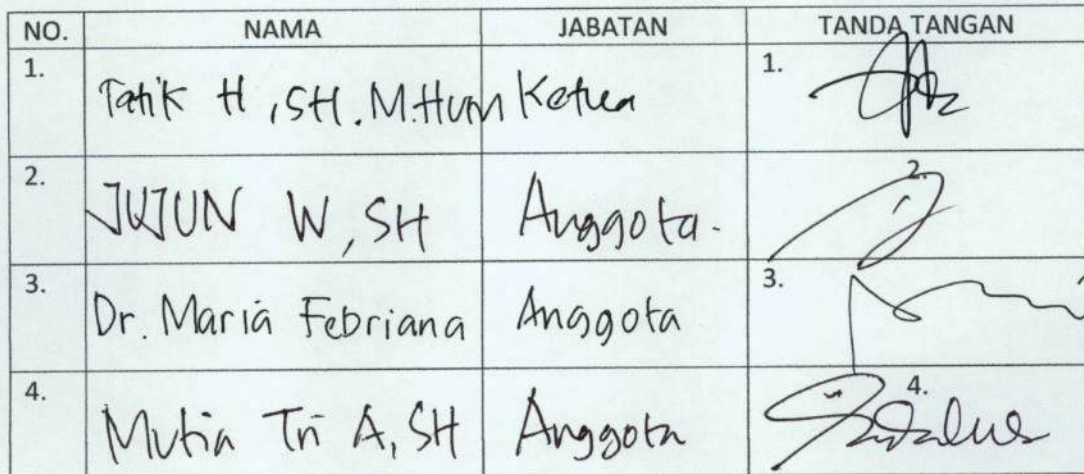 NO. NAMA JABATAN TANDA TANGAN
1. Tatik H, SH. M.Hum Ketua 1.
2. JUJUN W, SH Anggota. 2.
3. Dr. Maria Febriana Anggota 3.
4. Mutia Tri A, SH Anggota 4.